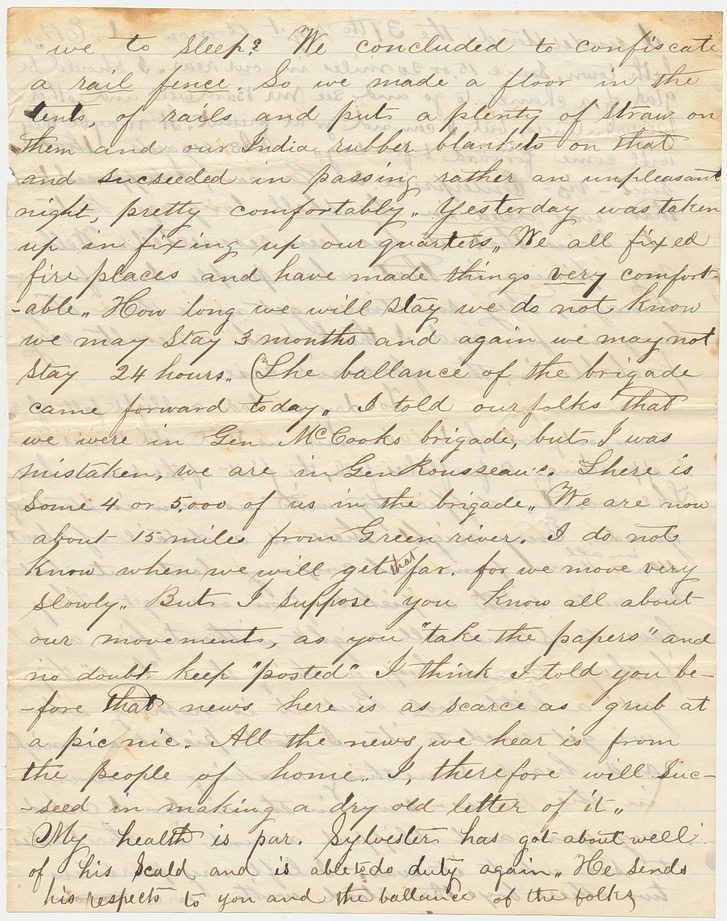 we to sleep? We concluded to confiscate
a rail fence. So we made a floor in the
tents, of rails and put a plenty of straw on
them and our India rubber blankets on that
and sucseeded in passing rather an unpleasant
night, pretty comfortably.. Yesterday was taken
up in fixing up our quarters.. We all fixed
fire places and have made things very comfort-
-able.. How long we will stay we do not know
we may stay 3 months and again we may not
stay 24 hours.. (The ballance of the brigade
came forward today.. I told our folks that
we were in Gen McCooks brigade, but I was
mistaken, we are in Gen Rousseau's. There is
some 4 or 5,000 of us in the brigade.. We are now
about 15 miles from Green river. I do not
know when we will get that far. for we move very
slowly.. But I suppose you know all about
our movements, as you "take the papers" and
no doubt keep "posted" I think I told you be-
-fore that news here is as scarce as grub at
a pic nic. All the news we hear is from
the people of home.. I, therefore will suc-
-seed in making a dry old letter of it..
My health is par. Sylvester has got about well
of his scald and is able to do duty again.. He sends
his respects to you and the ballance of the folks